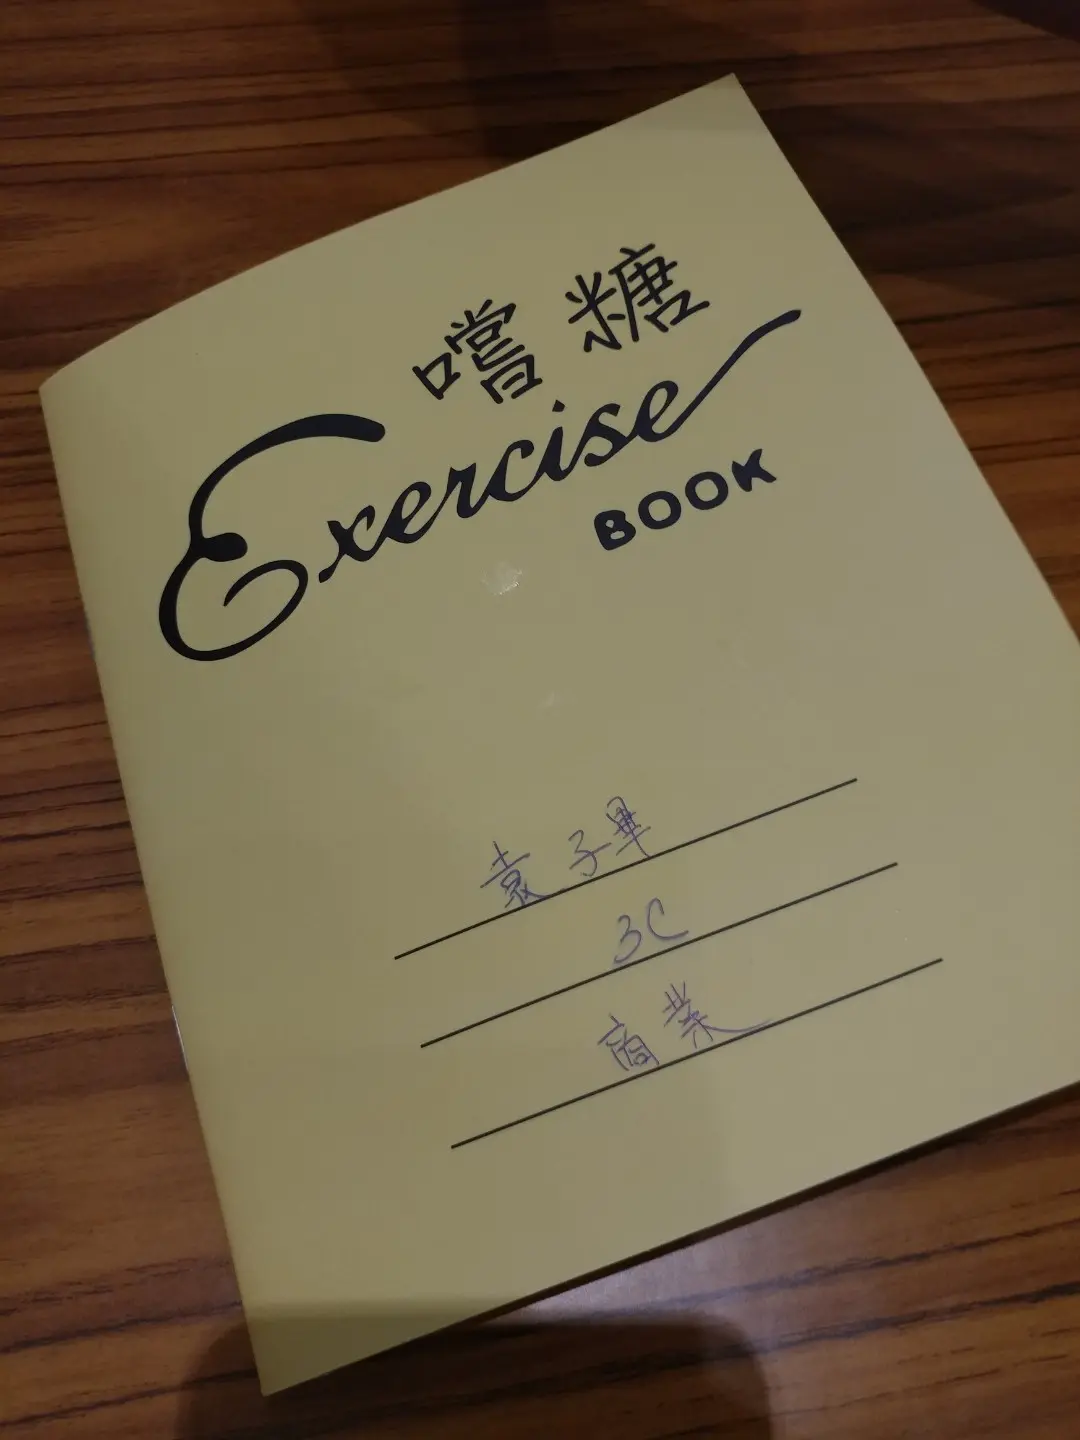 嚐糖
Exercise
BOOK
袁子畢
3C
商業